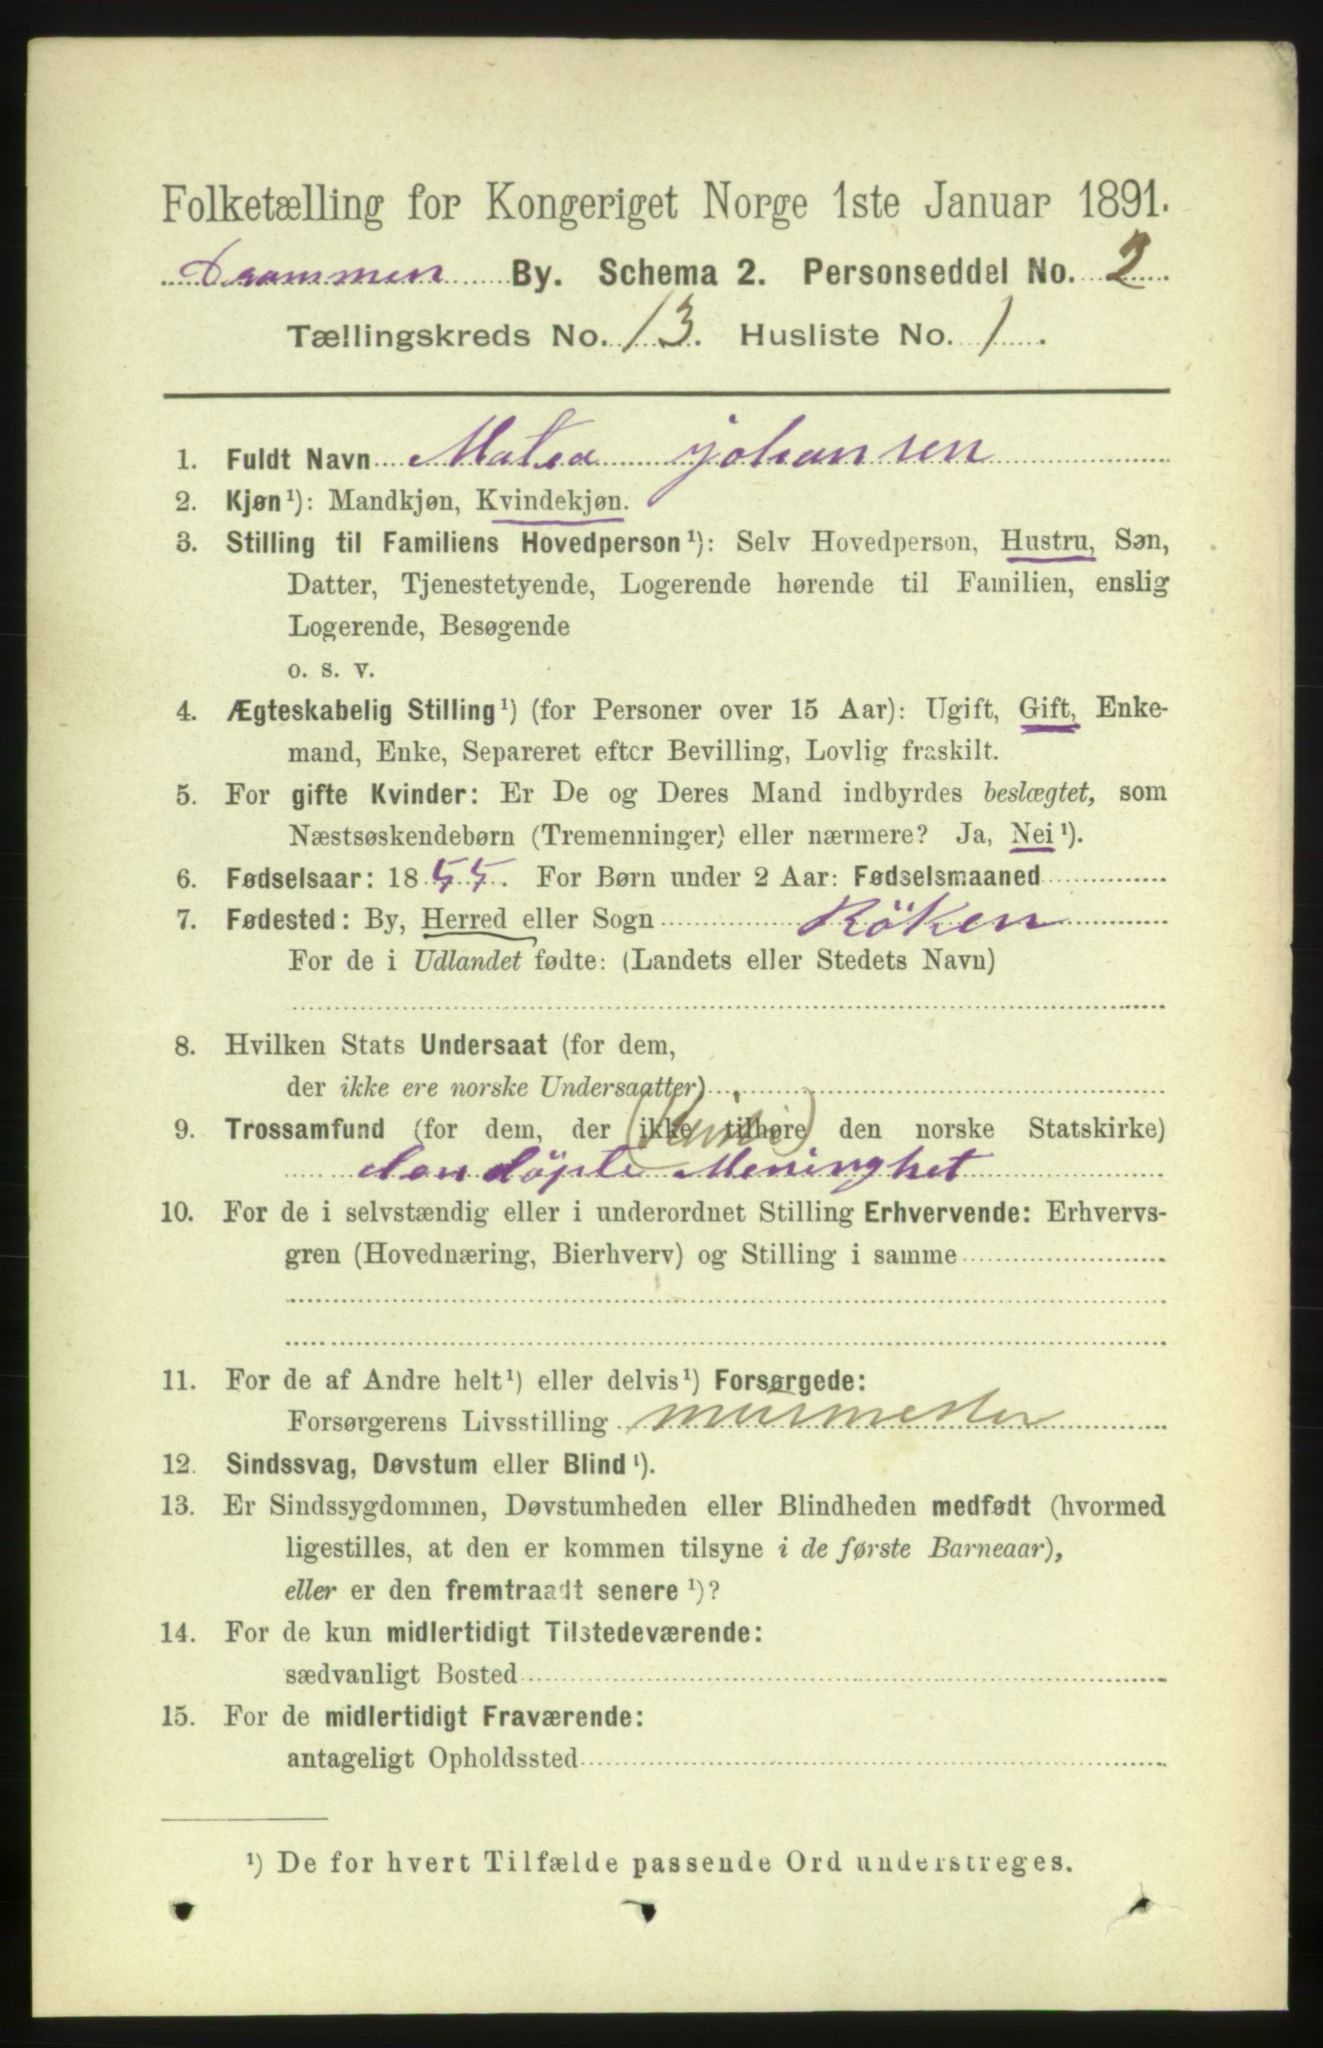 Folketælling for Kongeriget Norge 1ste Januar 1891.
Drammen By. Schema 2. Personseddel No. 2
Tællingskreds No. 13. Husliste No. 1.
1. Fuldt Navn Matea Johansen
2. Kjøn¹): Mandkjøn, Kvindekjøn.
3. Stilling til Familiens Hovedperson¹): Selv Hovedperson, Hustru, Søn,
Datter, Tjenestetyende, Logerende hørende til Familien, enslig
Logerende, Besøgende
o. s. v.
4. Ægteskabelig Stilling¹) (for Personer over 15 Aar): Ugift, Gift, Enke-
mand, Enke, Separeret efter Bevilling, Lovlig fraskilt.
5. For gifte Kvinder: Er De og Deres Mand indbyrdes beslægtet, som
Næstsøskendebørn (Tremenninger) eller nærmere? Ja, Nei¹).
6. Fødselsaar: 1855. For Børn under 2 Aar: Fødselsmaaned
7. Fødested: By, Herred eller Sogn Röken
For de i Udlandet fødte: (Landets eller Stedets Navn)
8. Hvilken Stats Undersaat (for dem,
der ikke ere norske Undersaatter)
9. Trossamfund (for dem, der ikke tilhøre den norske Statskirke)
den döpte Meninghet
10. For de i selvstændig eller i underordnet Stilling Erhvervende: Erhvervs-
gren (Hovednæring, Bierhverv) og Stilling i samme
11. For de af Andre helt¹) eller delvis¹) Forsørgede:
Forsørgerens Livsstilling murmester
12. Sindssvag, Døvstum eller Blind¹).
13. Er Sindssygdommen, Døvstumheden eller Blindheden medfødt (hvormed
ligestilles, at den er kommen tilsyne i de første Barneaar),
eller er den fremtraadt senere¹)?
14. For de kun midlertidigt Tilstedeværende:
sædvanligt Bosted
15. For de midlertidigt Fraværende:
antageligt Opholdssted
¹) De for hvert Tilfælde passende Ord understreges.